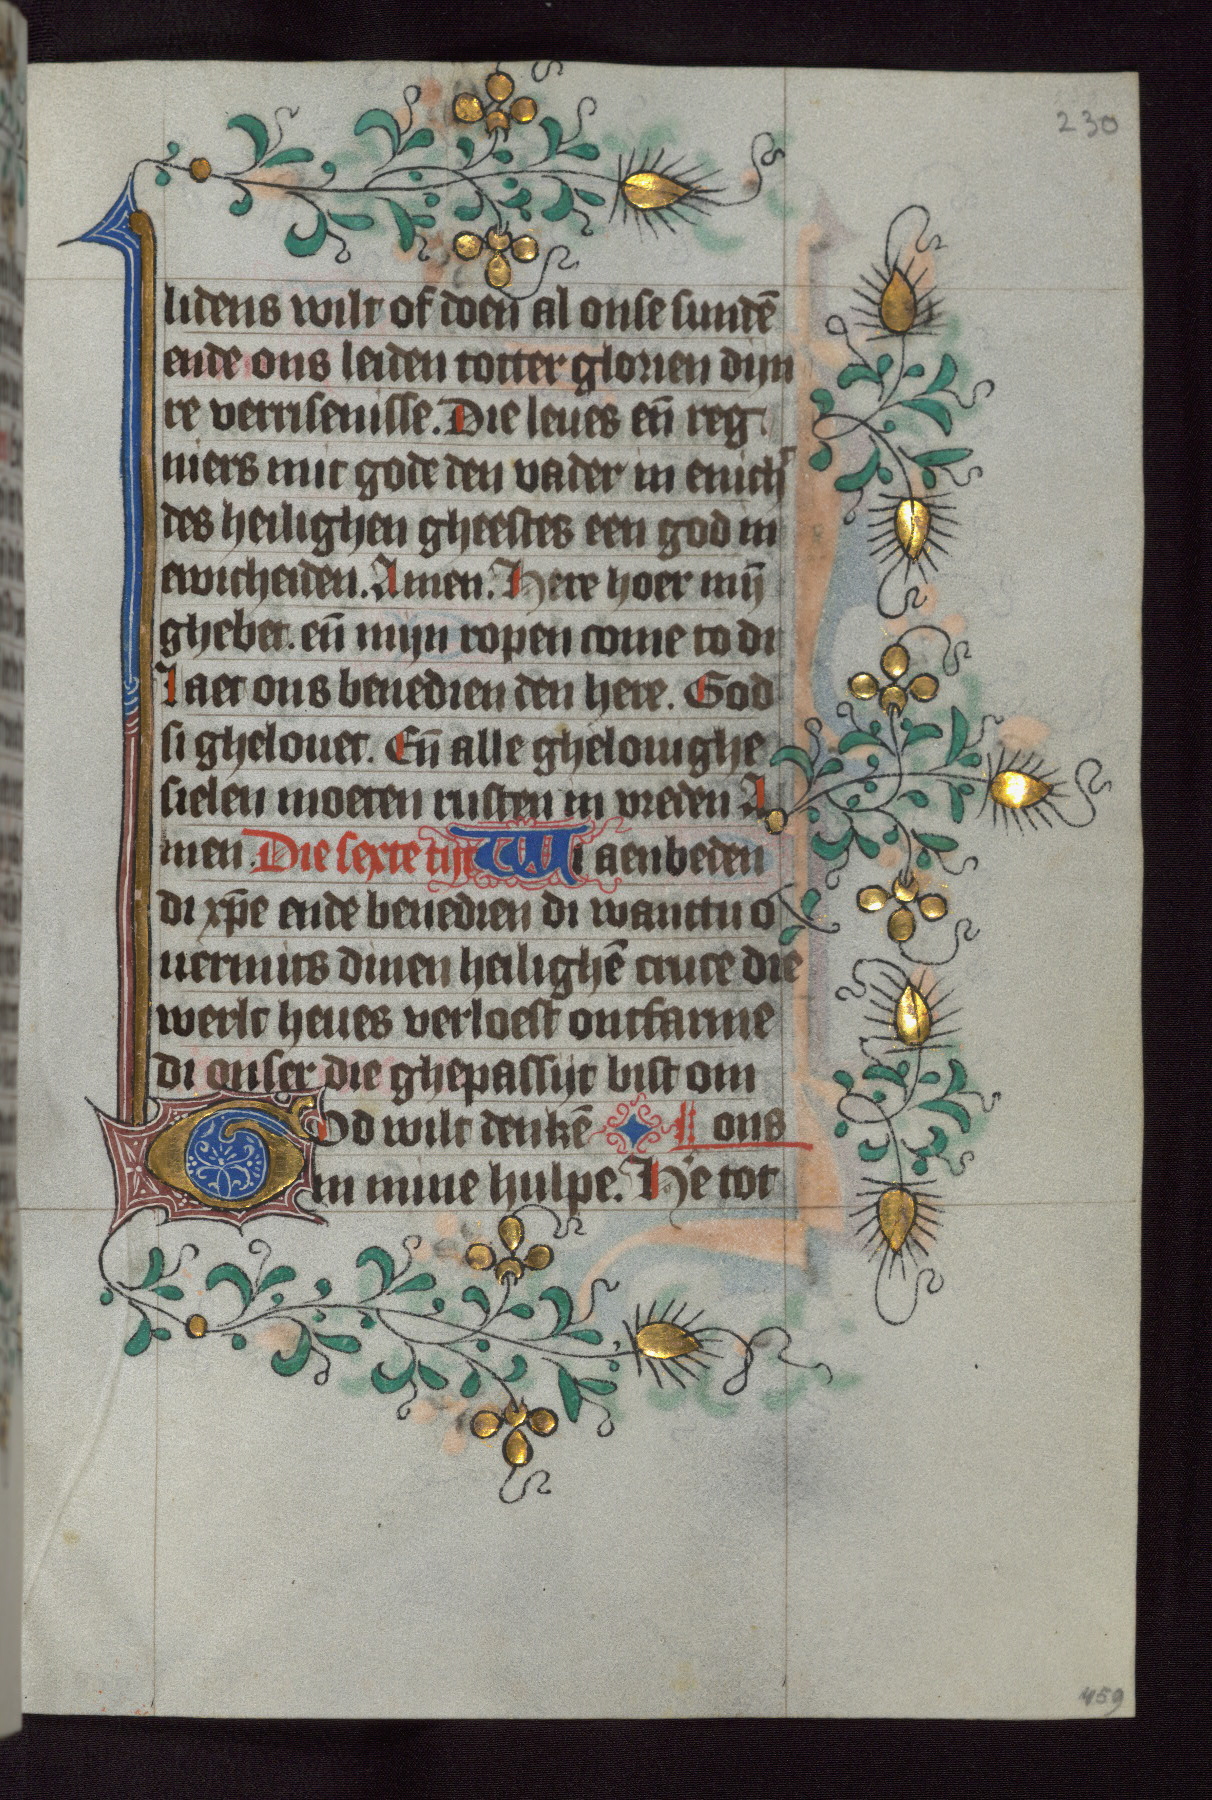 230
lidens wilt of doen al onse sundē
ende ons leiden totter glorien dijn
re verrisenisse. Die leues en̄ reg
niers mit gode den vader in enich
des heilighen gheestes een god in
ewicheiden. Amen. Here hoer mȳ
ghebet. en̄ mijn ropen come to di
Laet ons benedien den here. God
si ghelouet. En̄ alle ghelouighe
sielen moeten rusten in vreden A
men. Die sexte tijt Wi aenbeden
di xp̄e ende benedien di wanttu o
uermits dinen heilighē cruce die
werlt heues verloest ontfarme
di onser die ghepassijt bist om
God wilt denkē ons
in mine hulpe. He tot
459